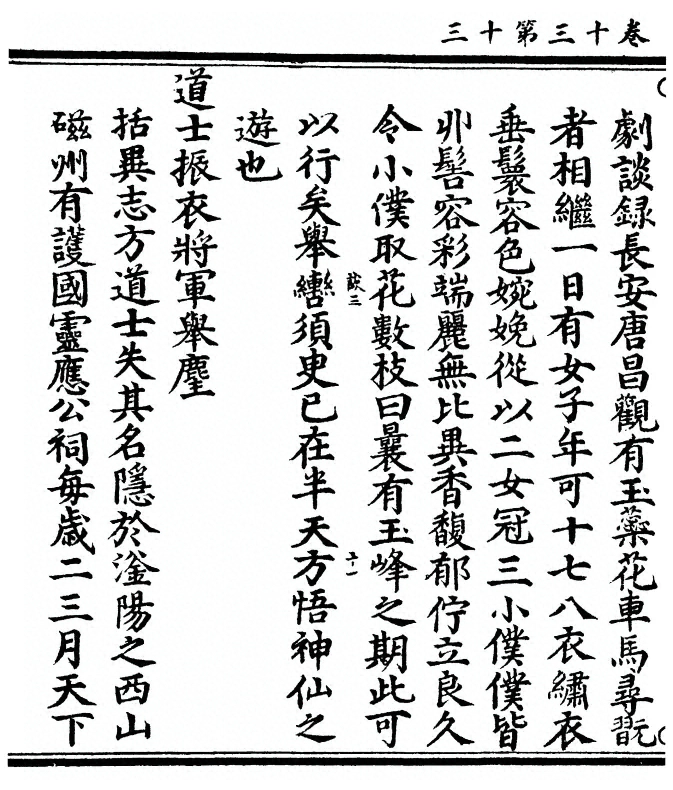 卷十三第十三
劇談録長安唐昌觀有玉蘂花車馬尋翫
者相繼一日有女子年可十七八衣繡衣
垂鬟容色婉娩從以二女冠三小僕僕皆
丱髻容彩端麗無比異香馥郁佇立良久
令小僕取花數枝曰曩有玉峰之期此可
談三
五十一
以行矣舉轡須臾已在半天方悟神仙之
遊也
道士振衣將軍舉麈
括異志方道士失其名隱於滏陽之西山
磁州有護國靈應公祠每歲二三月天下